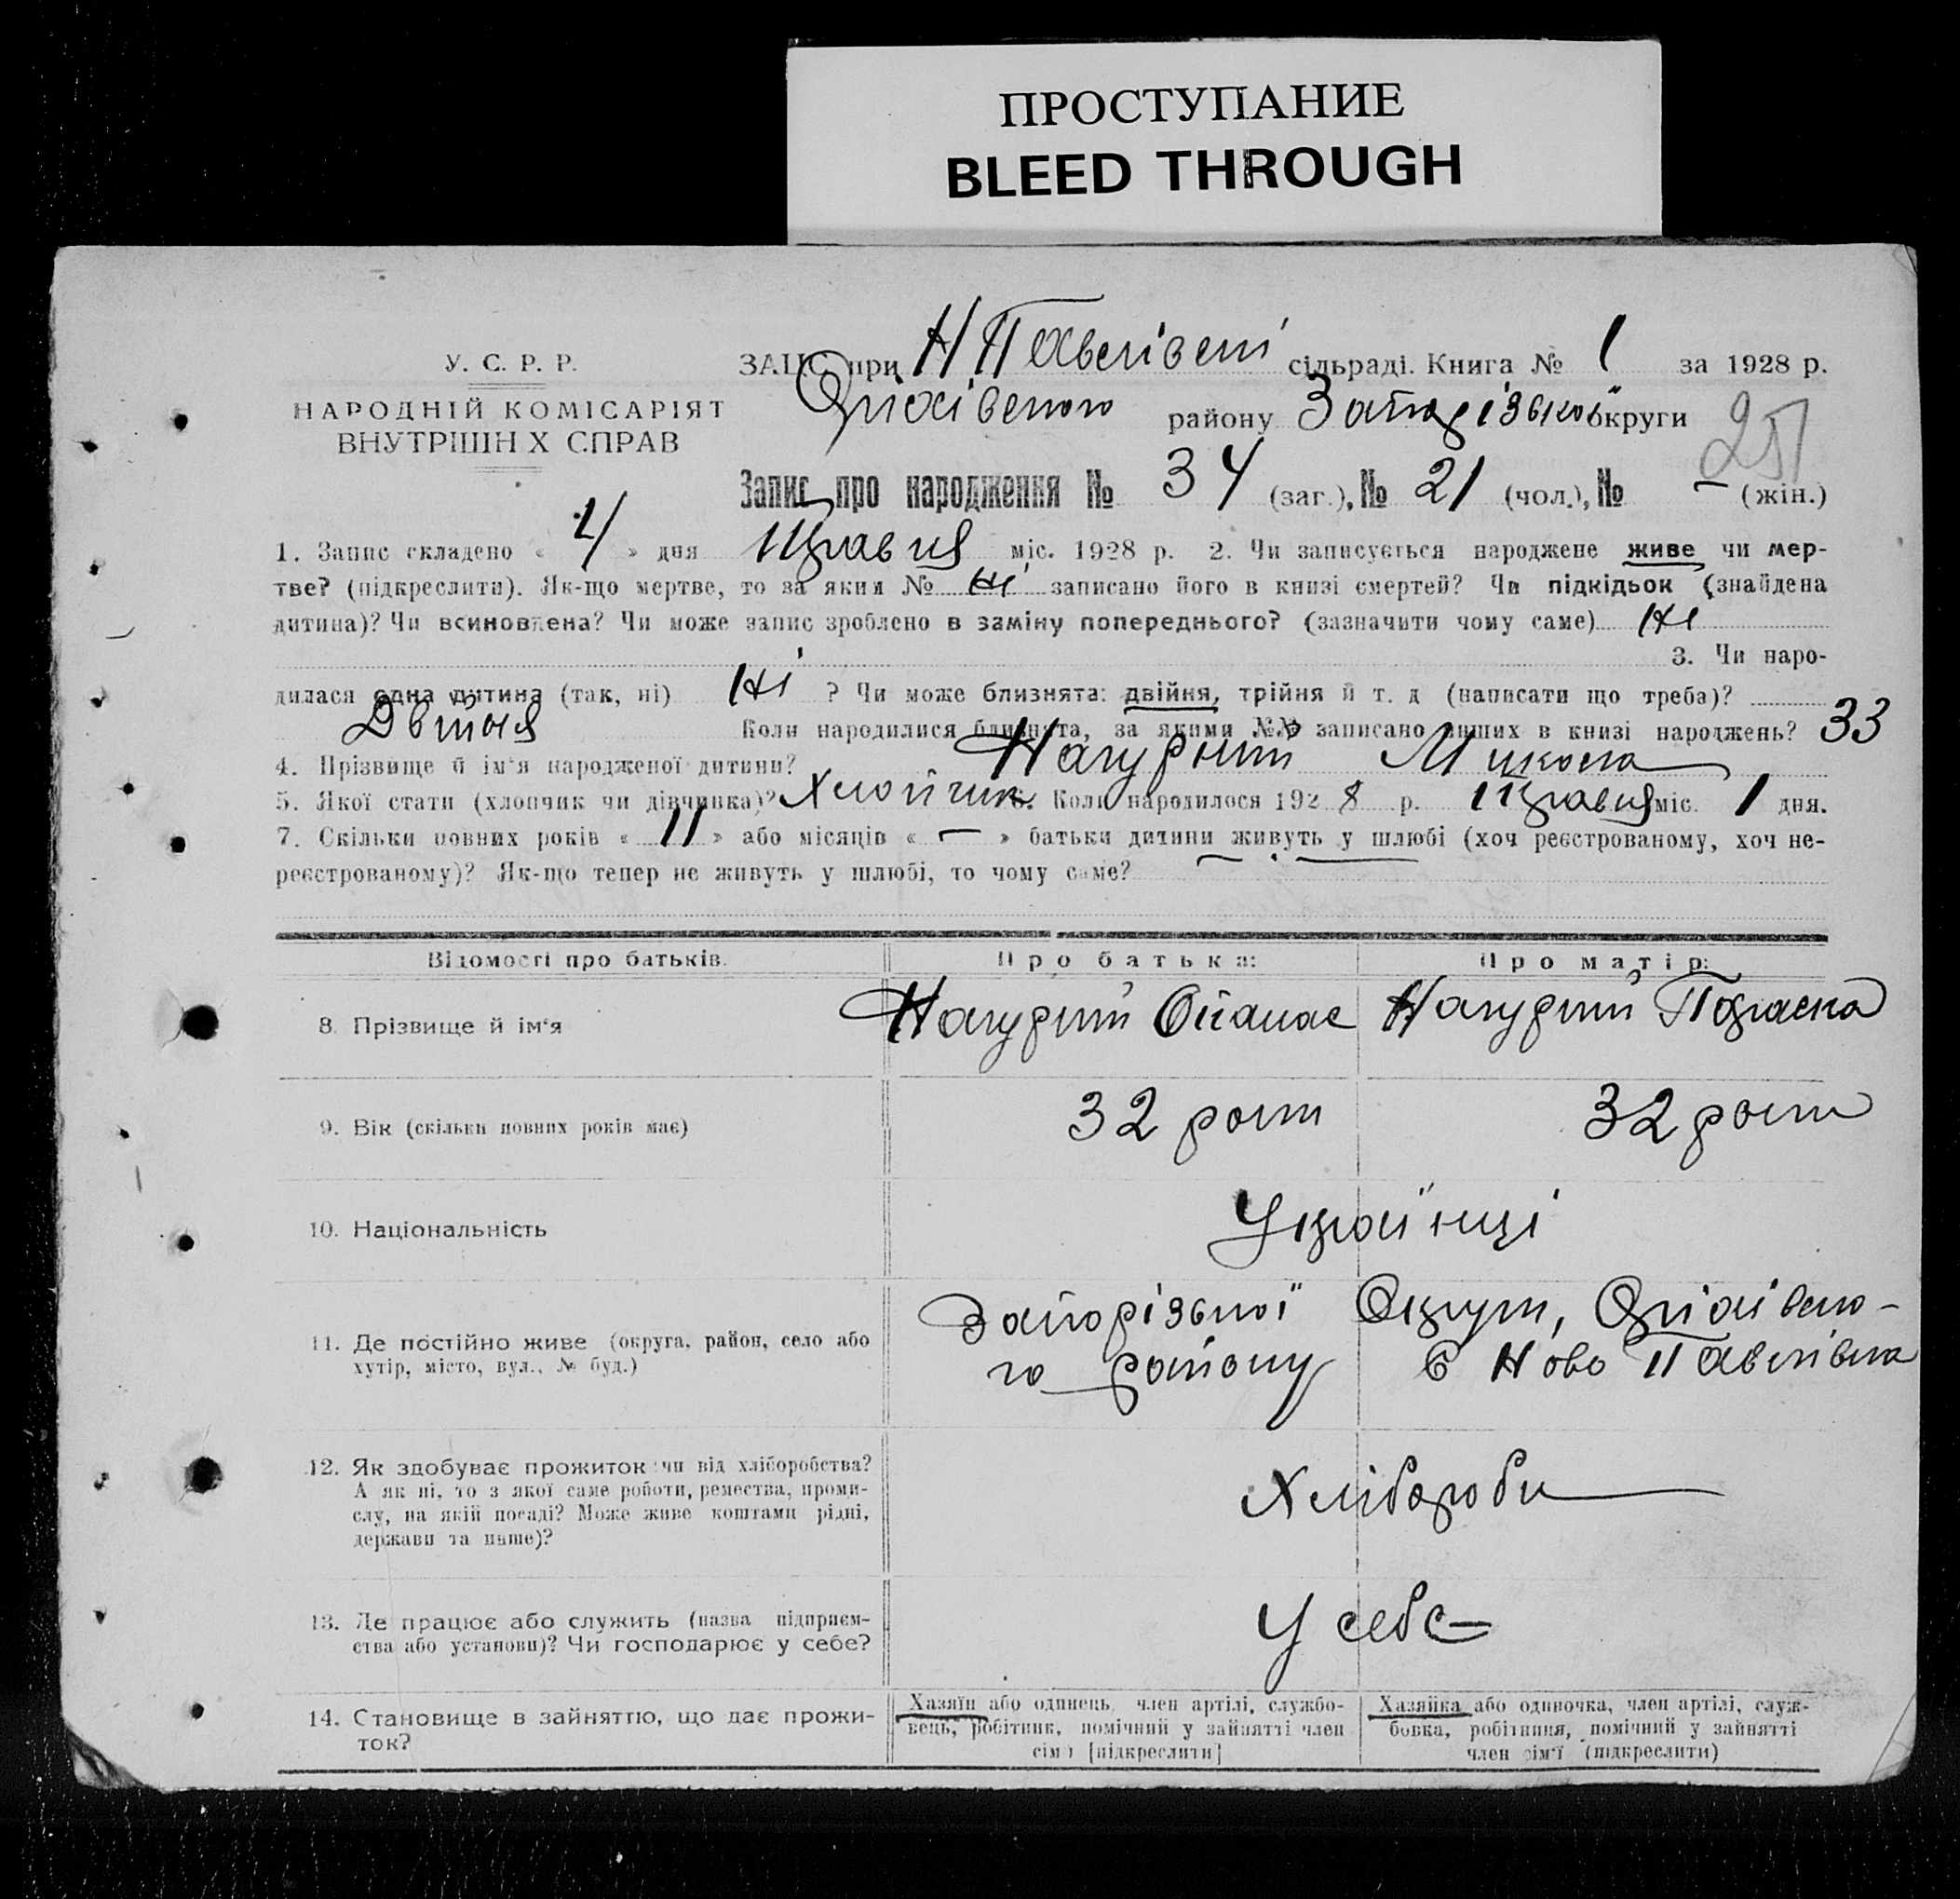 ПРОСТУПАНИЕ
BLEED THROUGH
У. С. Р. Р.
НАРОДНІЙ КОМІСАРІЯТ
ВНУТРІШН Х СПРАВ
ЗАЦС при Н Павлівскі сільраді. Книга № 1 за 1928 р.
Оріхівского району Запорізької округи
251
Запис про народження № 34 (заг.), № 21 (чол.), № — (жін.)
1. Запис складено « 4 » дня Травня міс. 1928 р. 2. Чи записується народжене живе чи мер-
тве? (підкреслити). Як-що мертве, то за яким № Ні записано його в книзі смертей? Чи підкідьок (знайдена
дитина)? Чи всиновлена? Чи може запис зроблено в заміну попереднього? (зазначити чому саме) Ні
3. Чи наро-
дилася одна дитина (так, ні) Ні ? Чи може близнята: двійня, трійня й т. д (написати що треба)?
Двійня Коли народилися близнята, за якими №№ записано інших в книзі народжень? 33
4. Прізвище й ім'я народженої дитини? Нагурний Микола
5. Якої стати (хлопчик чи дівчинка)? Хлопчик. Коли народилося 192 8 р. Травня міс. 1 дня.
7. Скільки повних років « 11 » або місяців « — » батьки дитини живуть у шлюбі (хоч реєстрованому, хоч не-
реєстрованому)? Як-що тепер не живуть у шлюбі, то чому саме?
Відомості про батьків. Про батька: Про матір:
8. Прізвище й ім'я Нагурний Опанас Нагурний Параска
9. Вік (скільки повних років має) 32 роки 32 роки
10. Національність Українці
11. Де постійно живе (округа, район, село або
хутір, місто, вул., № буд.)
Запорізької Округи, Оріхівско-
го району С Ново Павлівка
12. Як здобуває прожиток: чи від хліборобства?
А як ні, то з якої саме роботи, ремества, проми-
слу, на якій посаді? Може живе коштами рідні,
держави та инше)?
Хлібороби
13. Де працює або служить (назва підприєм-
ства або установи)? Чи господарює у себе?
У себе
14. Становище в зайняттю, що дає прожи-
ток?
Хазяїн або одинець, член артілі, службо-
вець, робітник, помічний у зайнятті член
сім ї [підкреслити]
Хазяйка або одиночка, член артілі, служ-
бовка, робітниця, помічний у зайнятті
член сім'ї (підкреслити)